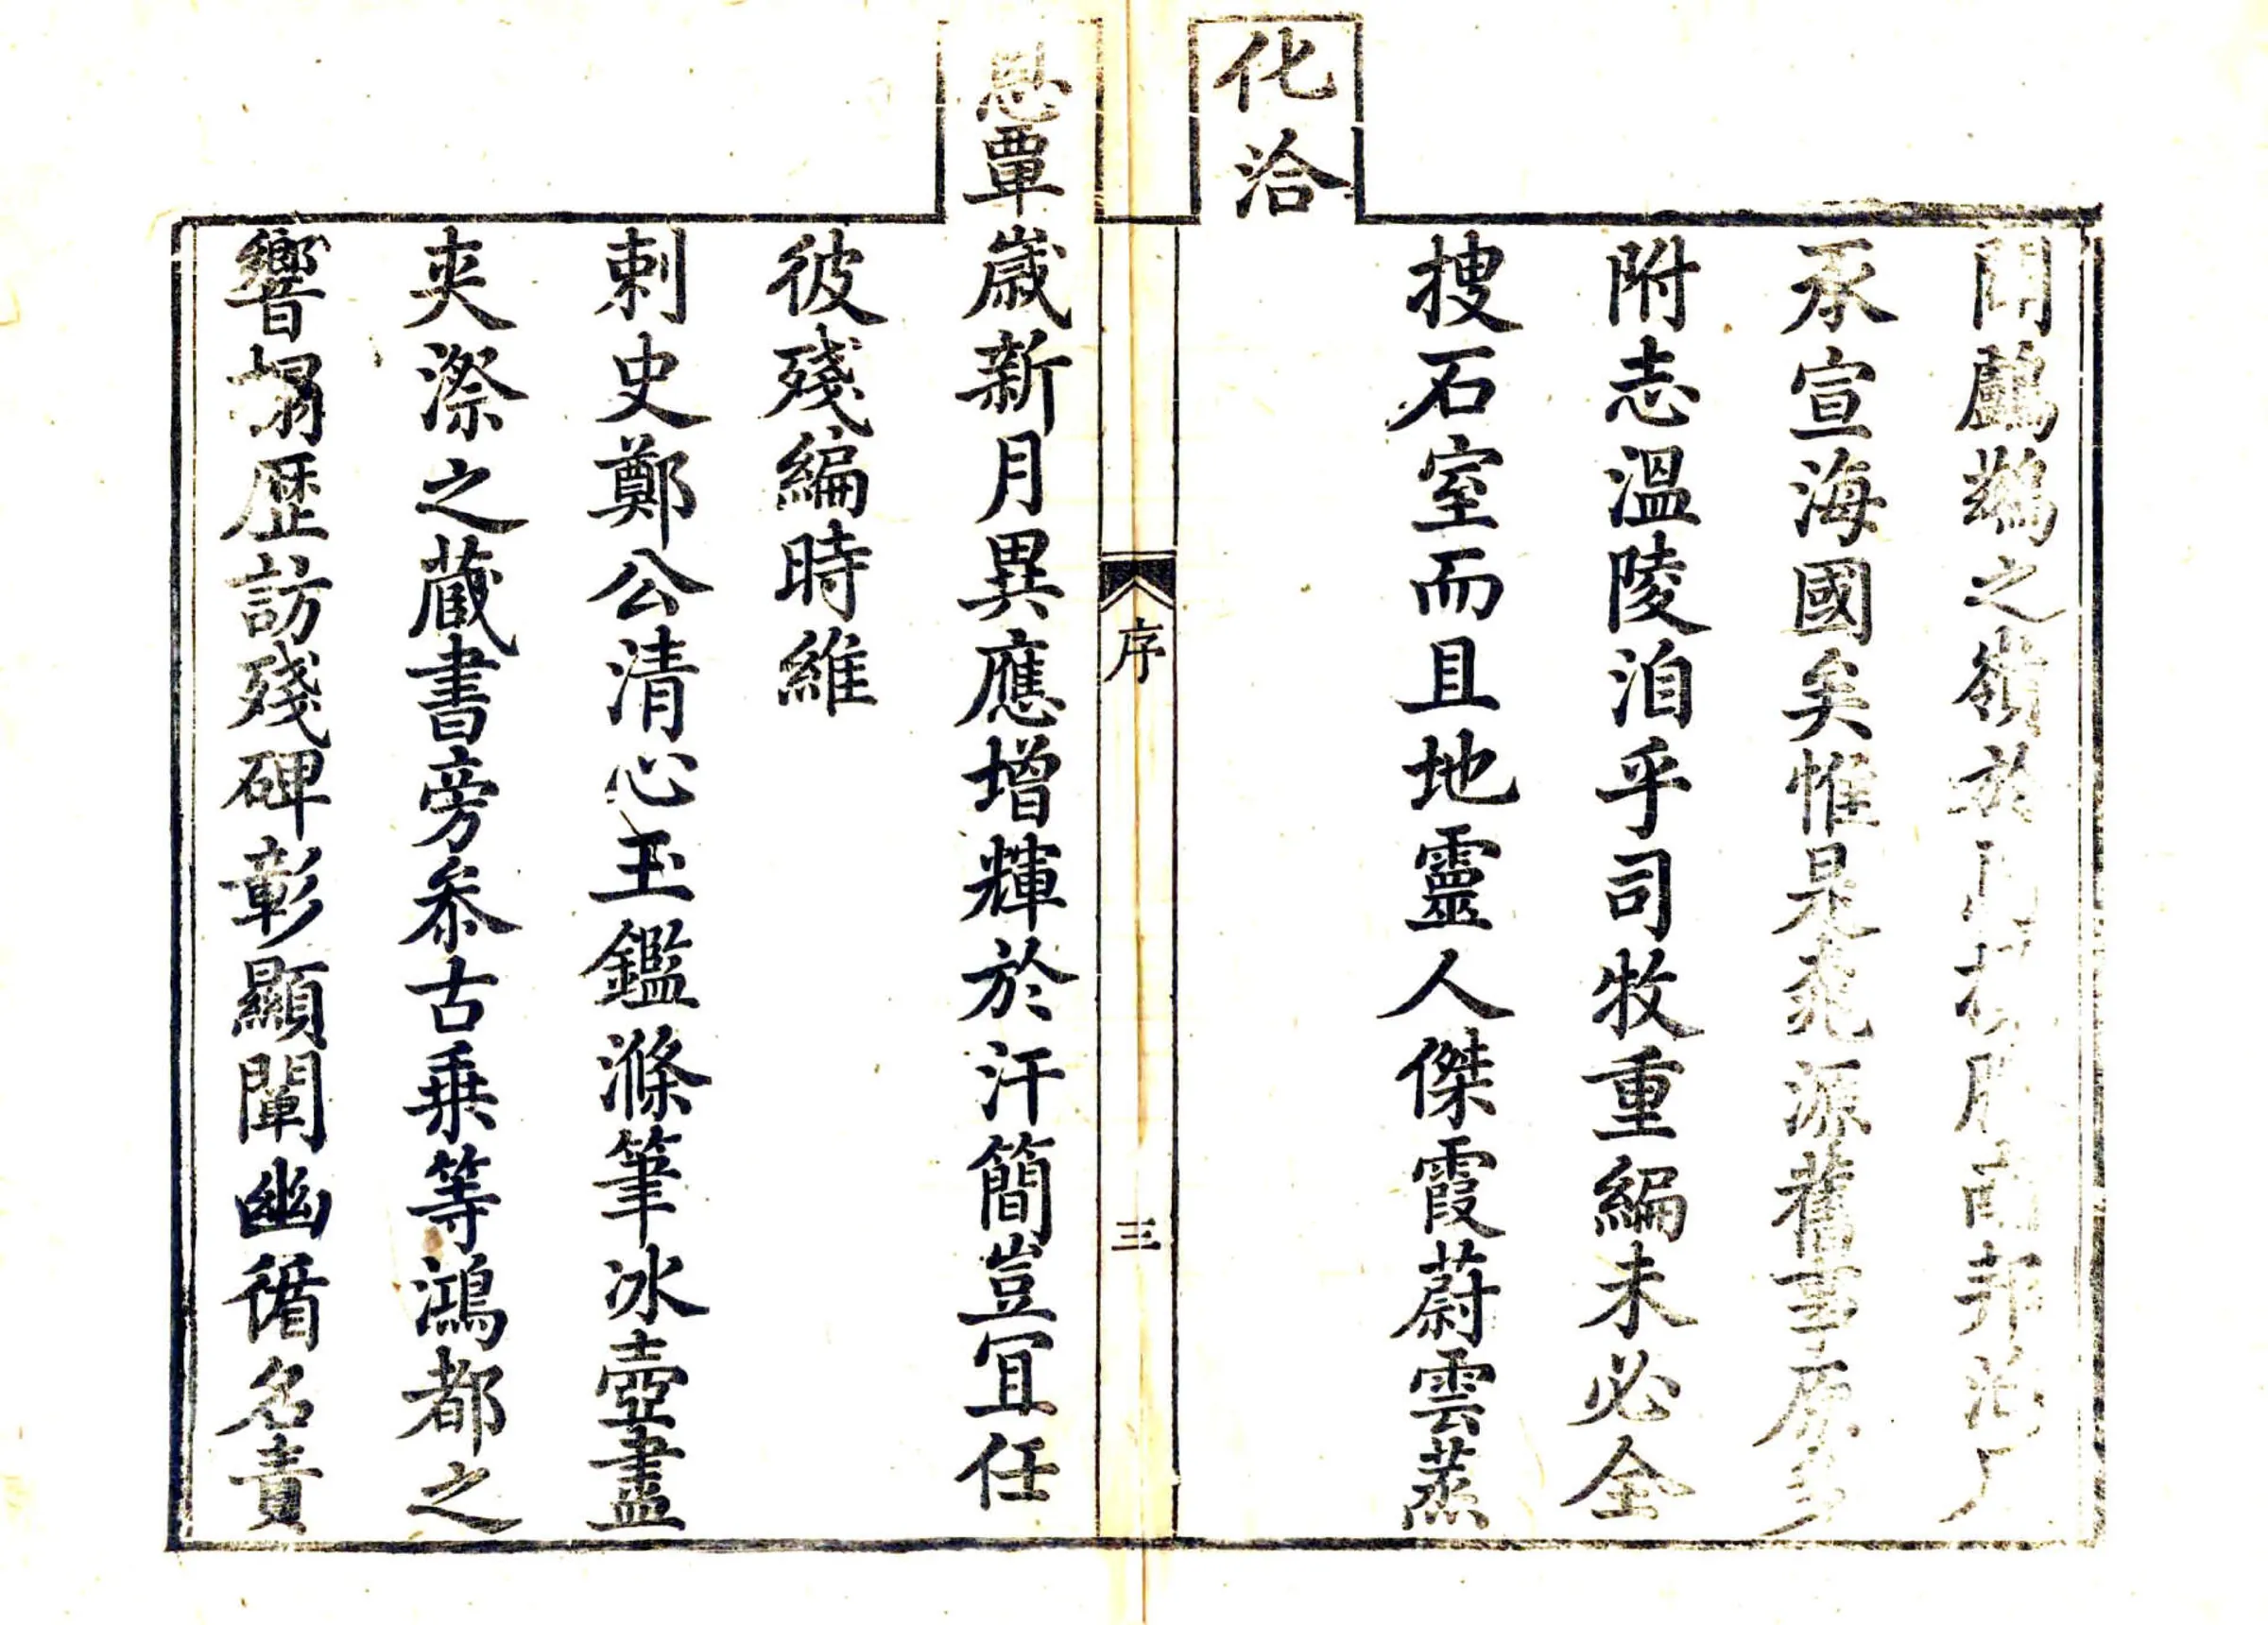 之嶺於南邦
承宣海國矣惟是桃源舊事原多
附志溫陵洎乎司牧重編未必全
搜石室而且地靈人傑霞蔚雲蒸
化洽
序 三
恩覃歲新月異應增輝於汗簡豈宜任
彼殘編時維
刺史鄭公清心玉鑑滌筆冰壺盡
夾漈之藏書旁叅古乗等鴻都之
響搨歷訪殘碑彰顯闡幽循名責